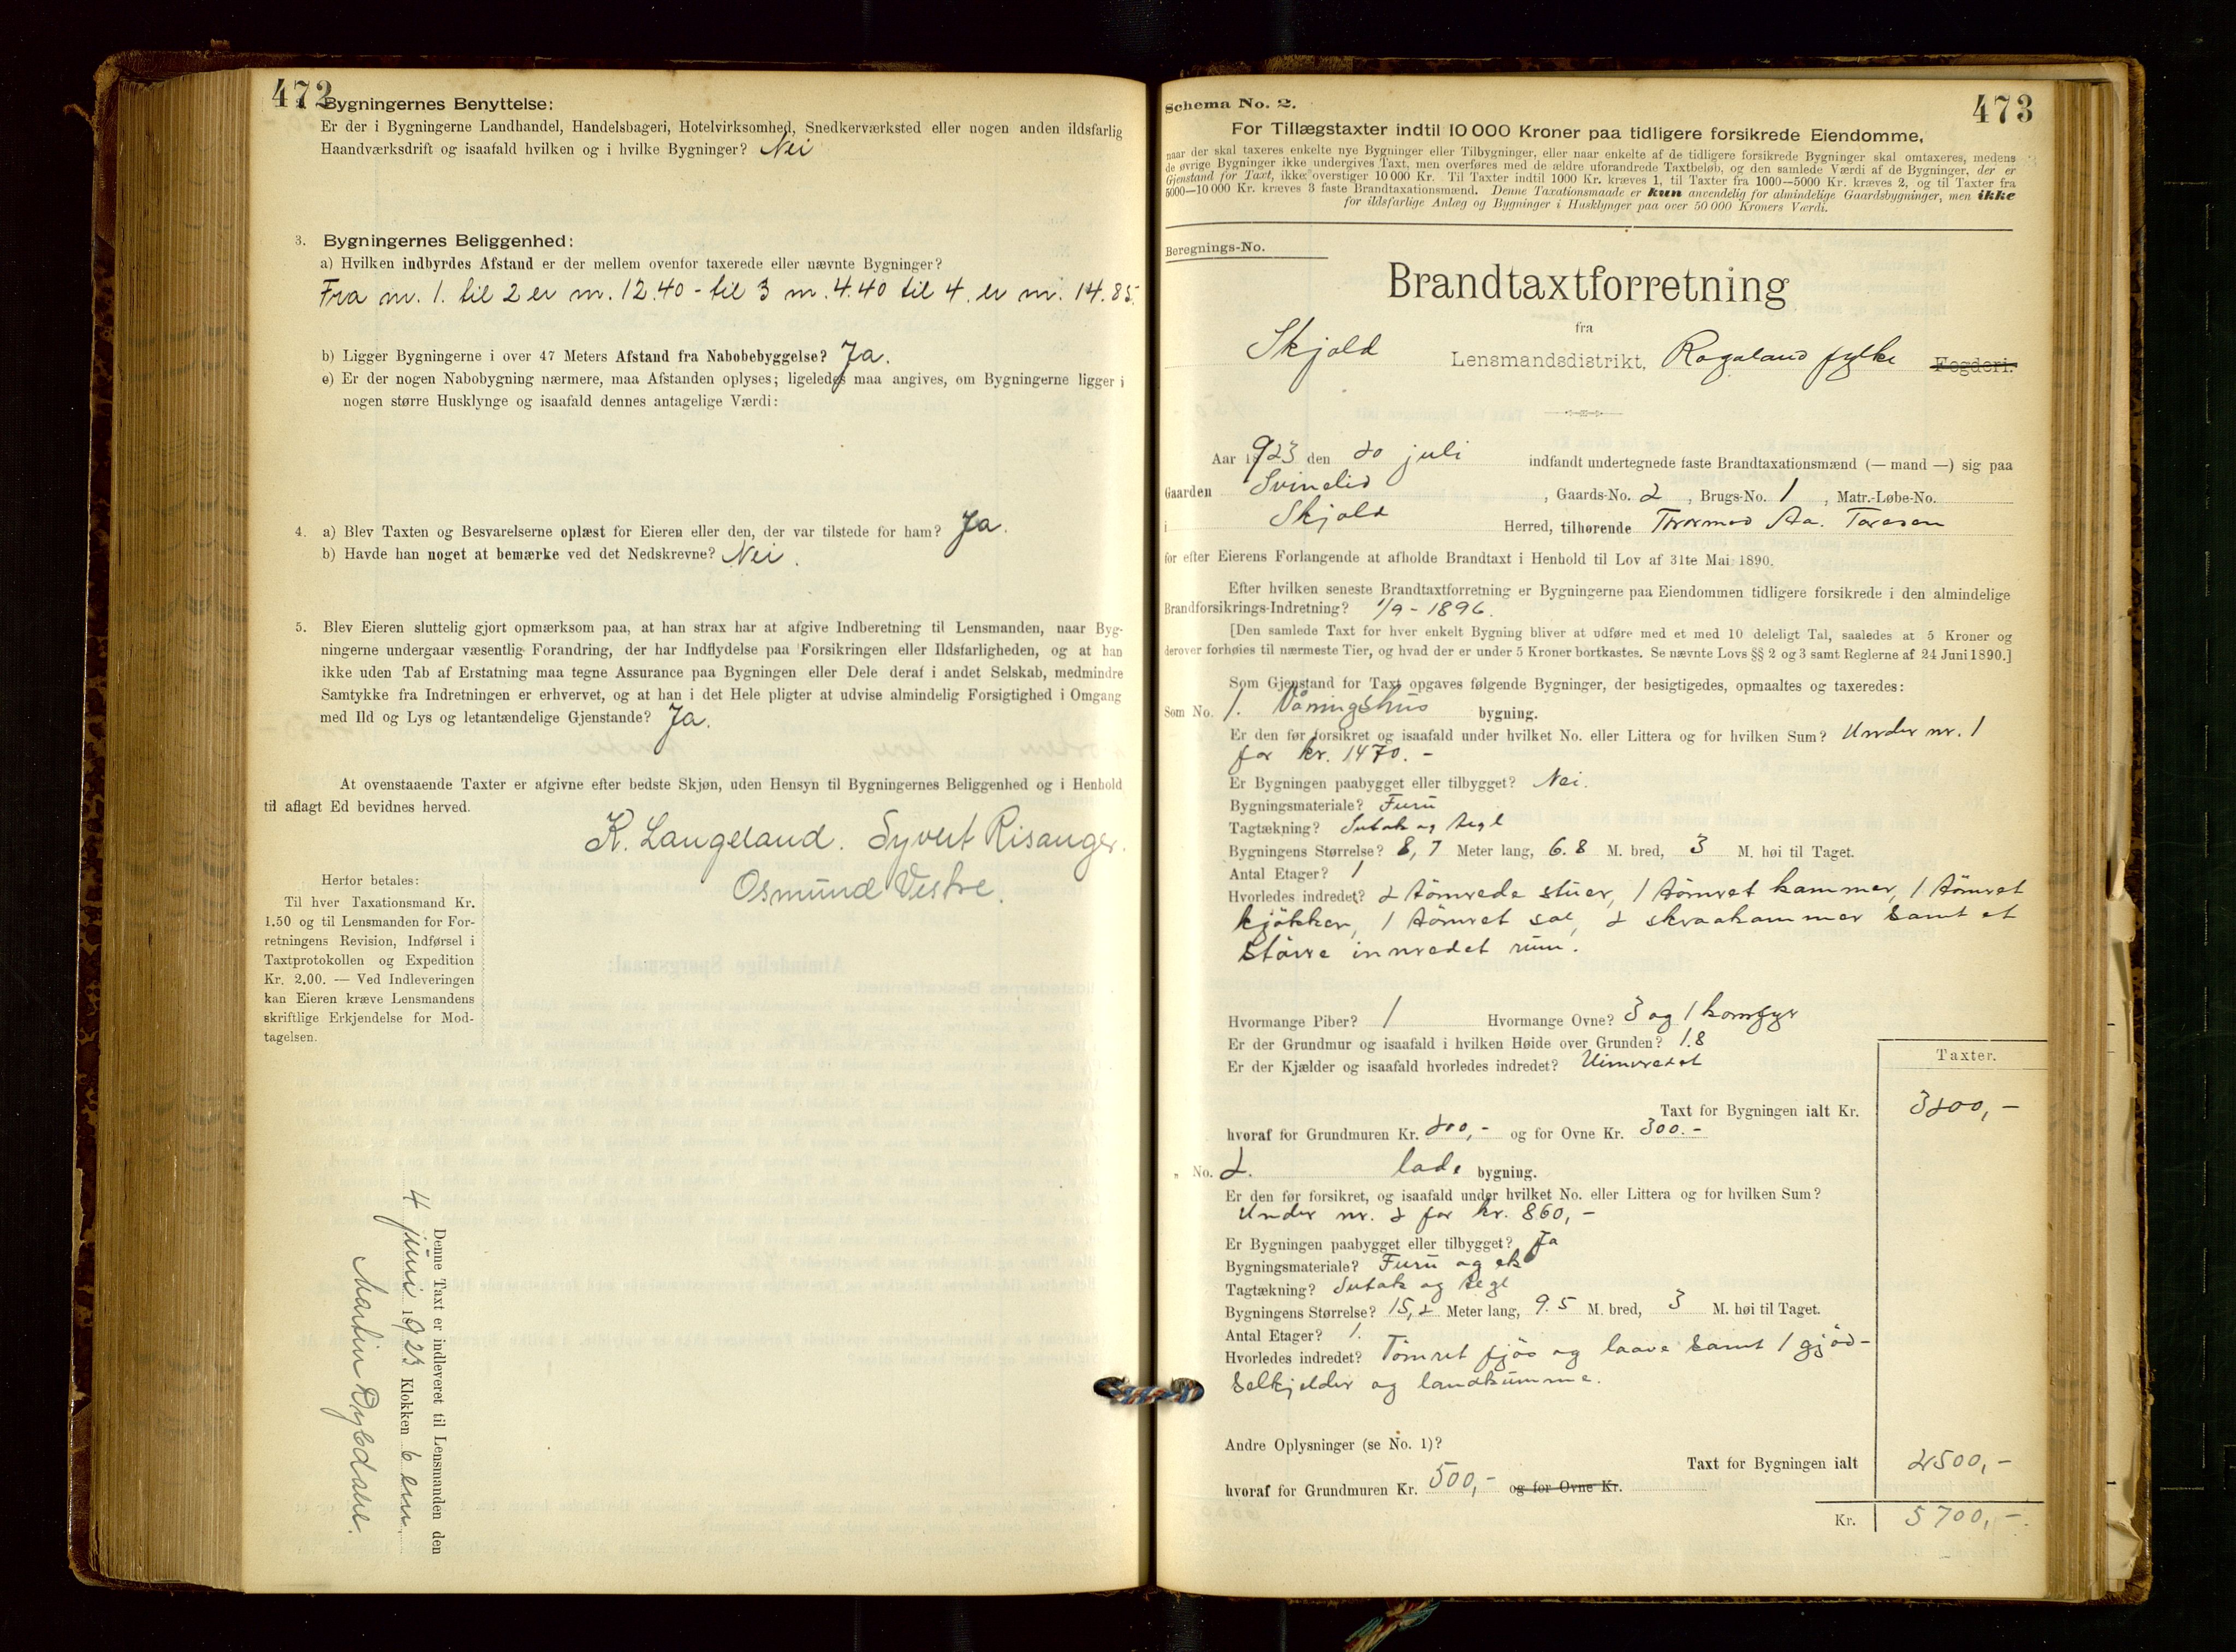 472
2. Bygningernes Benyttelse:
Er der i Bygningerne Landhandel, Handelsbageri, Hotelvirksomhed, Snedkerværksted eller nogen anden ildsfarlig
Haandværksdrift og isaafald hvilken og i hvilke Bygninger? Nei
3. Bygningernes Beliggenhed:
a) Hvilken indbyrdes Afstand er der mellem ovenfor taxerede eller nævnte Bygninger?
Fra nr. 1. til 2 er m. 12.40 - til 3 m. 4.40 til 4. er m. 14.85.
b) Ligger Bygningerne i over 47 Meters Afstand fra Nabobebyggelse? Ja.
c) Er der nogen Nabobygning nærmere, maa Afstanden oplyses; ligeledes maa angives, om Bygningerne ligger i
nogen større Husklynge og isaafald dennes antagelige Værdi:
4. a) Blev Taxten og Besvarelserne oplæst for Eieren eller den, der var tilstede for ham? Ja.
b) Havde han noget at bemærke ved det Nedskrevne? Nei.
5. Blev Eieren sluttelig gjort opmærksom paa, at han strax har at afgive Indberetning til Lensmanden, naar Byg-
ningerne undergaar væsentlig Forandring, der har Indflydelse paa Forsikringen eller Ildsfarligheden, og at han
ikke uden Tab af Erstatning maa tegne Assurance paa Bygningen eller Dele deraf i andet Selskab, medmindre
Samtykke fra Indretningen er erhvervet, og at han i det Hele pligter at udvise almindelig Forsigtighed i Omgang
med Ild og Lys og letantændelige Gjenstande? Ja.
At ovenstaaende Taxter er afgivne efter bedste Skjøn, uden Hensyn til Bygningernes Beliggenhed og i Henhold
til aflagt Ed bevidnes herved.
K. Langeland. Syvert Risanger.
Osmund Vestre.
Herfor betales:
Til hver Taxationsmand Kr.
1.50 og til Lensmanden for For-
retningens Revision, Indførsel i
Taxtprotokollen og Expedition
Kr. 2.00. — Ved Indleveringen
kan Eieren kræve Lensmandens
skriftlige Erkjendelse for Mod-
tagelsen.
Denne Taxt er indleveret til Lensmanden den
4 juni 1923 Klokken 6 em.
Martin Dybdahl.
473
Schema No. 2.
For Tillægstaxter indtil 10 000 Kroner paa tidligere forsikrede Eiendomme,
naar der skal taxeres enkelte nye Bygninger eller Tilbygninger, eller naar enkelte af de tidligere forsikrede Bygninger skal omtaxeres, medens
de øvrige Bygninger ikke undergives Taxt, men overføres med de ældre uforandrede Taxtbeløb, og den samlede Værdi af de Bygninger, der er
Gjenstand for Taxt, ikke overstiger 10 000 Kr. Til Taxter indtil 1000 Kr. kræves 1, til Taxter fra 1000—5000 Kr. kræves 2, og til Taxter fra
5000—10 000 Kr. kræves 3 faste Brandtaxationsmænd. Denne Taxationsmaade er kun anvendelig for almindelige Gaardsbygninger, men ikke
for ildsfarlige Anlæg og Bygninger i Husklynger paa over 50 000 Kroners Værdi.
Beregnings-No.
Brandtaxtforretning
fra
Skjold Lensmandsdistrikt, Rogaland fylke Fogderi.
Aar 1923 den 20 juli indfandt undertegnede faste Brandtaxationsmænd (— mand —) sig paa
Gaarden Svinelid, Gaards-No. 2, Brugs-No. 1, Matr.-Løbe-No.
i Skjold Herred, tilhørende Tormod Aa. Toresen
for efter Eierens Forlangende at afholde Brandtaxt i Henhold til Lov af 31te Mai 1890.
Efter hvilken seneste Brandtaxtforretning er Bygningerne paa Eiendommen tidligere forsikrede i den almindelige
Brandforsikrings-Indretning? 1/9 - 1896.
[Den samlede Taxt for hver enkelt Bygning bliver at udføre med et med 10 deleligt Tal, saaledes at 5 Kroner og
derover forhøies til nærmeste Tier, og hvad der er under 5 Kroner bortkastes. Se nævnte Lovs §§ 2 og 3 samt Reglerne af 24 Juni 1890.]
Som Gjenstand for Taxt opgaves følgende Bygninger, der besigtigedes, opmaaltes og taxeredes:
Som No. 1. Våningshus bygning.
Er den før forsikret og isaafald under hvilket No. eller Littera og for hvilken Sum? Under nr. 1
for kr. 1470.-
Er Bygningen paabygget eller tilbygget? Nei.
Bygningsmateriale? Furu
Tagtækning? Sutak og tegl
Bygningens Størrelse? 8,7 Meter lang, 6.8 M. bred, 3 M. høi til Taget.
Antal Etager? 1
Hvorledes indredet? 2 tömrede stuer, 1 tömret kammer, 1 tömret
kjökken, 1 tömret sal, 2 skraakammer samt et
större innredet rum.
Hvormange Piber? 1 Hvormange Ovne? 3 og 1 komfyr
Er der Grundmur og isaafald i hvilken Høide over Grunden? 1.8
Er der Kjælder og isaafald hvorledes indredet? Uinnredet
Taxter.
Taxt for Bygningen ialt Kr. 3200,-
hvoraf for Grundmuren Kr. 200,- og for Ovne Kr. 300.-
" No. 2. lade bygning.
Er den før forsikret, og isaafald under hvilket No. eller Littera og for hvilken Sum?
Under nr. 2 for kr. 860,-
Er Bygningen paabygget eller tilbygget? Ja
Bygningsmateriale? Furu og ek
Tagtækning? Sutak og tegl
Bygningens Størrelse? 15,2 Meter lang, 9.5 M. bred, 3 M. høi til Taget.
Antal Etager? 1.
Hvorledes indredet? Tömret fjös og laave samt 1 gjöd-
selkjelder og landkumme.
Andre Oplysninger (se No. 1)?
Taxt for Bygningen ialt 2500,-
hvoraf for Grundmuren Kr. 500,- og for Ovne Kr.
Kr. 5700,-